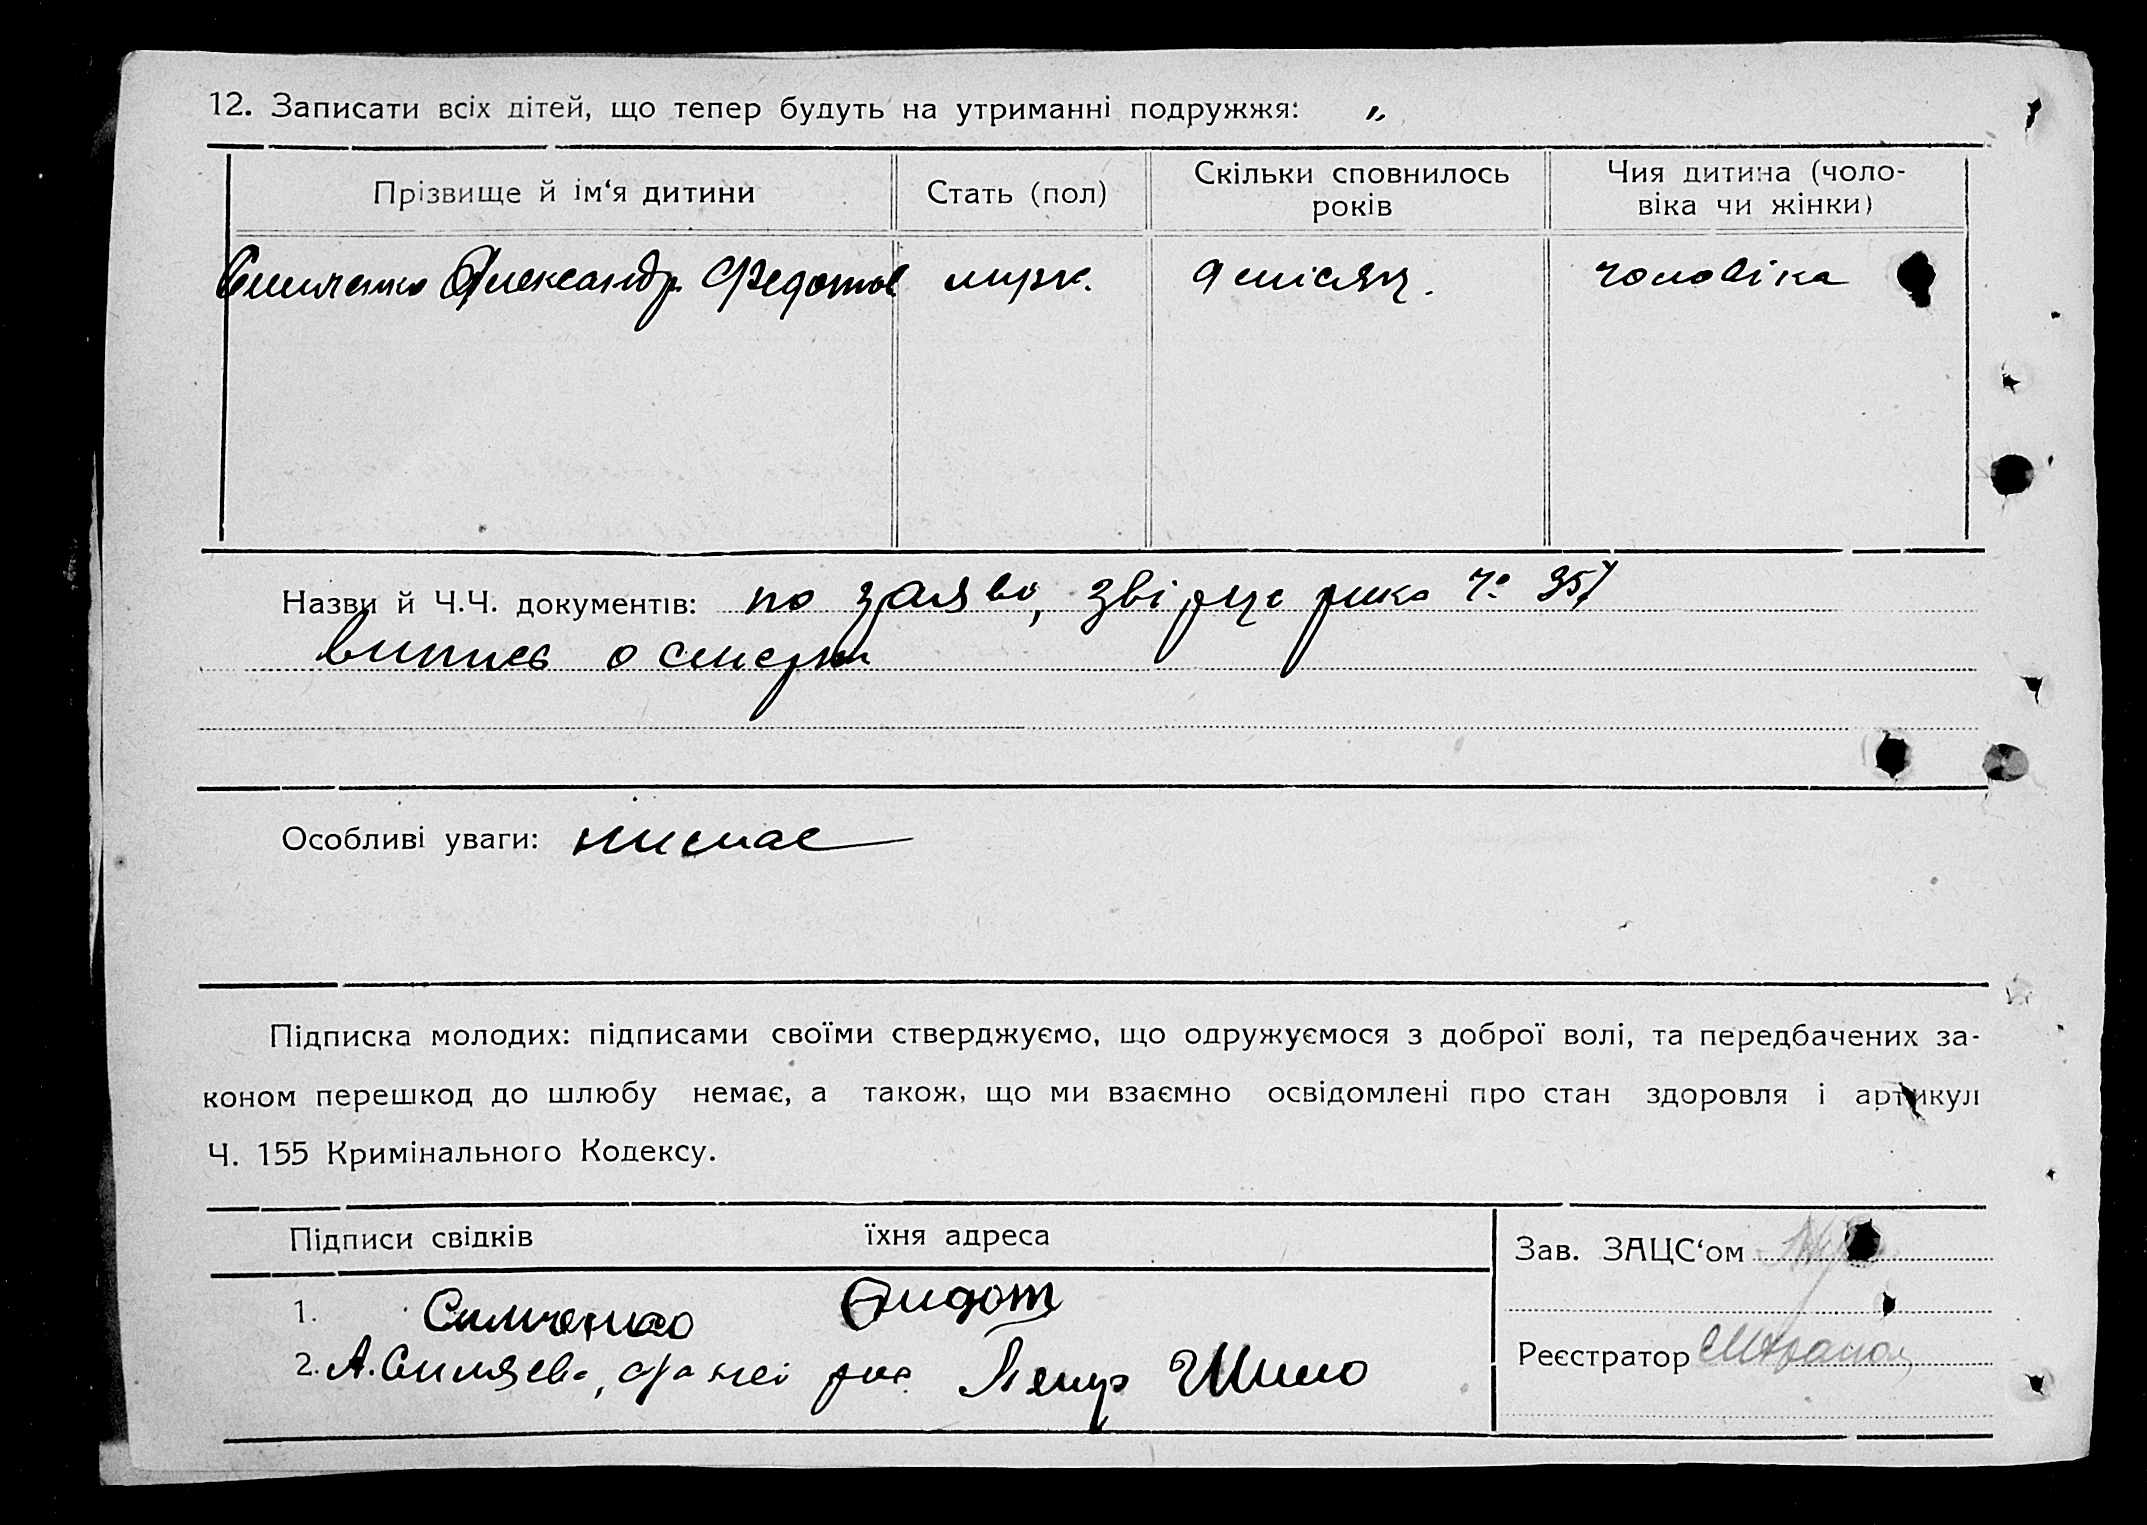 12. Записати всіх дітей, що тепер будуть на утриманні подружжя: „
Прізвище й ім‘я дитини
Стать (пол)
Скільки сповнилось
років
Чия дитина (чоло-
віка чи жінки)
Симченко Александр Федотов
мужс.
9 місяц.
чоловіка
Назви й Ч.Ч. документів: по заяве, 357
выпись о смерти
Особливі уваги: нимае
Підписка молодих: підписами своїми стверджуємо, що одружуємося з доброї волі, та передбачених за-
коном перешкод до шлюбу немає, а також, що ми взаємно освідомлені про стан здоровля і артикул
Ч. 155 Кримінального Кодексу.
Підписи свідків
їхня адреса
Зав. ЗАЦС‘ом
1. Симченко Фидот
2. А.
Шило
Реєстратор